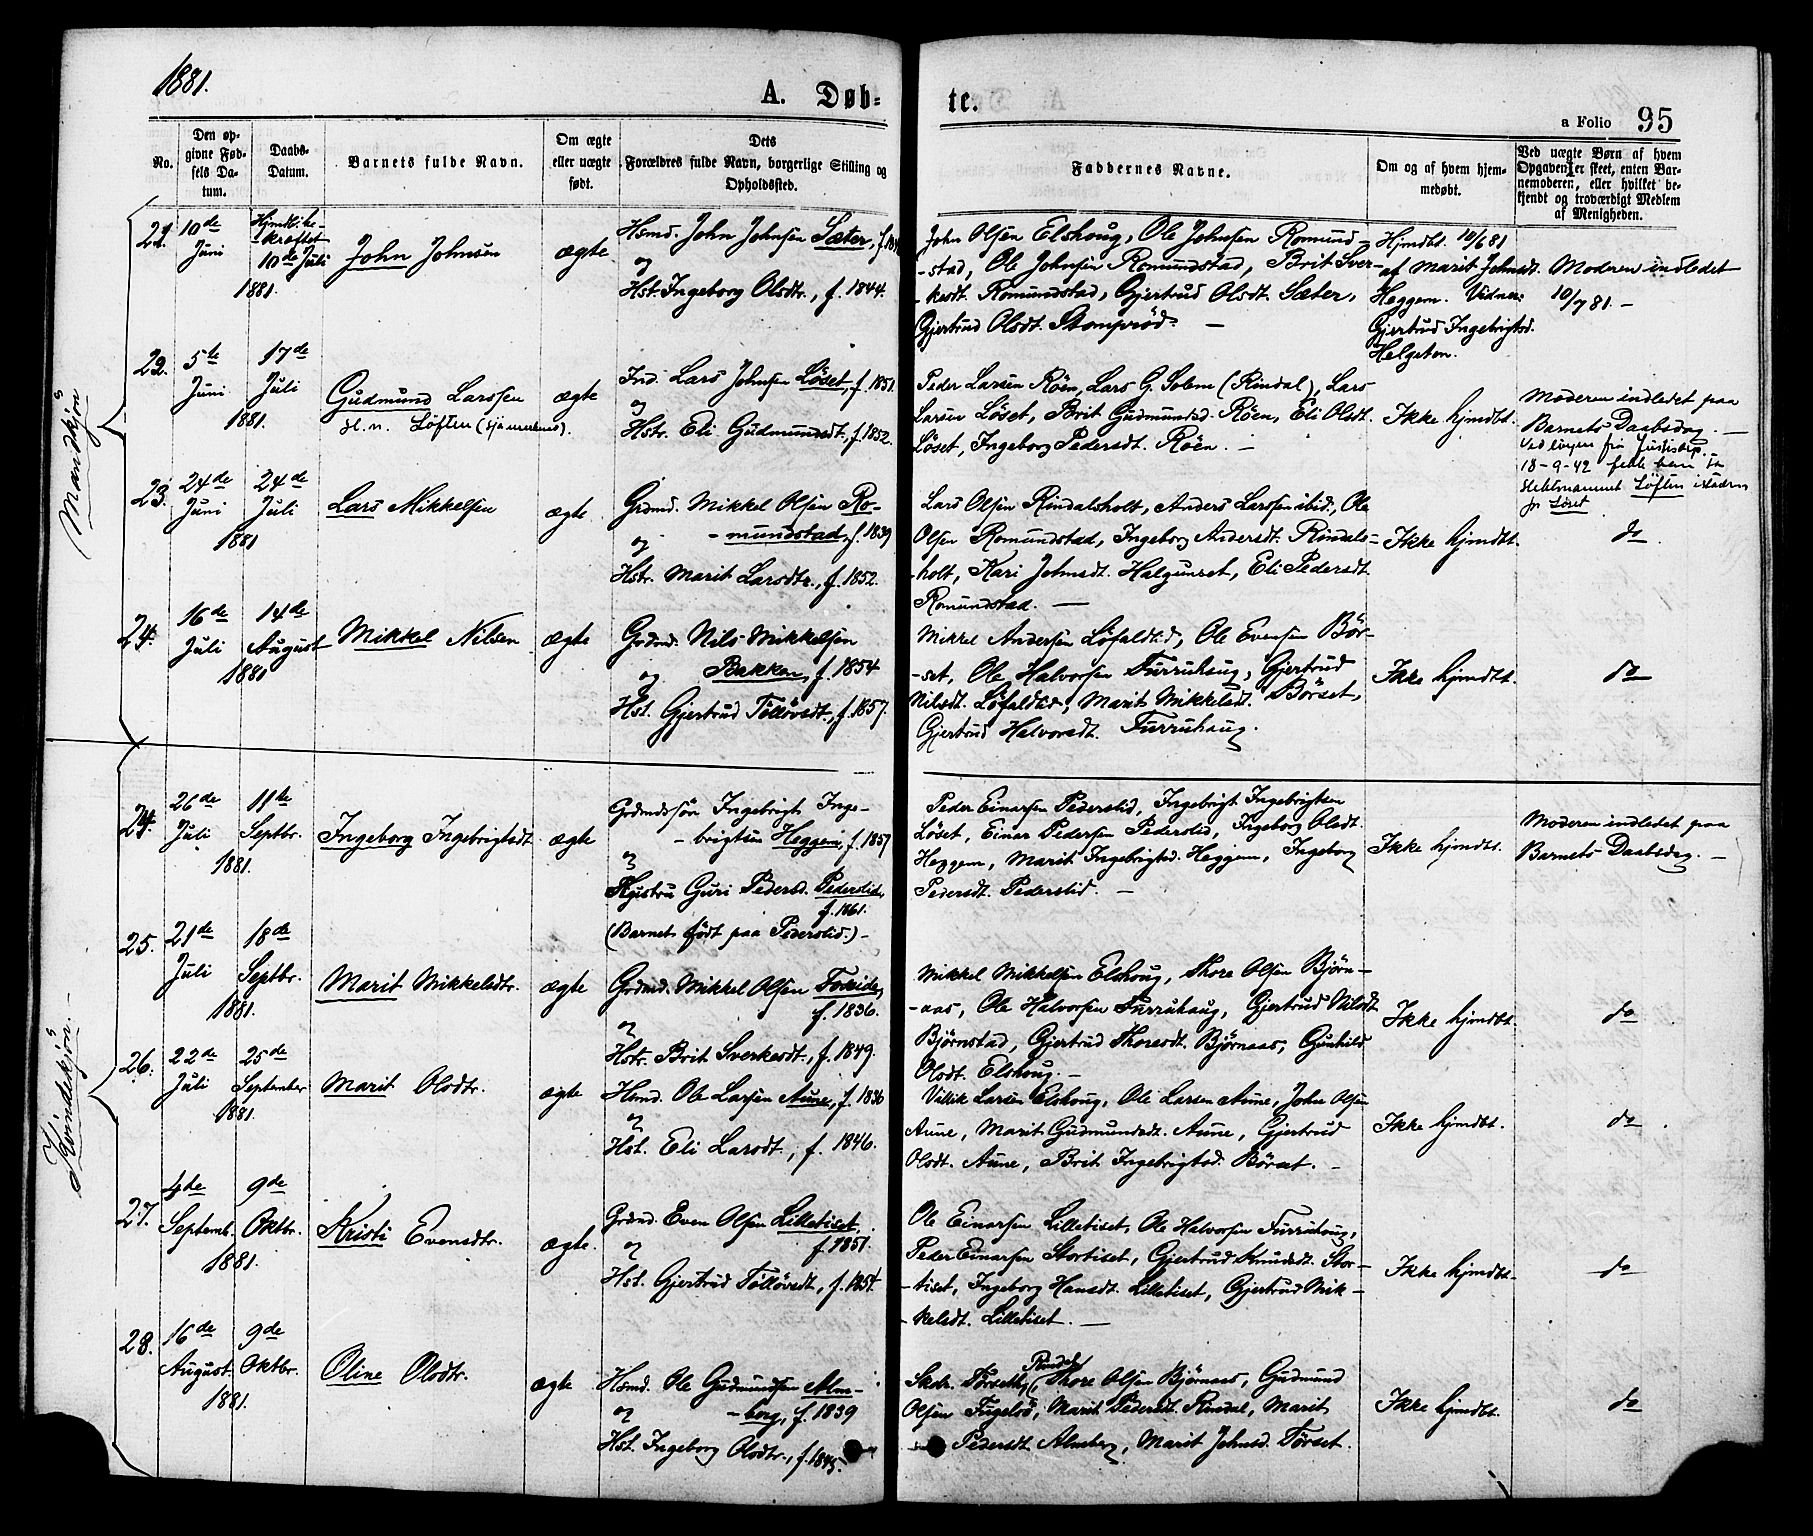 1881.
A. Døb-
te.
a Folio 95
No.
Den op-
givne Fød-
sels Da-
tum.
Daabs-
Datum.
Barnets fulde Navn.
Om ægte
eller uægte
født.
Dets
Forældres fulde Navn, borgerlige Stilling og
Opholdssted.
Faddernes Navne.
Om og af hvem hjem-
medøbt.
Ved uægte Børn af hvem
Opgaven er skeet, enten Bar-
nemoderen, eller hvilket be-
kjendt og troværdigt Medlem
af Menigheden.
Mandkjøn
21. 10de
Juni
Hjmdb. be-
kræftet
10de Juli
1881.
John Johnsen
ægte
Hsmd. John Johnsen Sæter,
og
Hst. Ingeborg Olsdtr., f. 1844.
John Olsen Elshoug, Ole Johnsen Romund-
-stad, Ole Johnsen Romundstad, Brit Sver-
-kesdt. Romundstad, Gjertrud Olsdt. Sæter,
Gjertrud Olsdt. Stomprød. —
Hjmdbt. 10/6 81
af Marit Johnsdt.
Heggem. Vidner:
Gjertrud Ingebrigtsd.
Helgeton.
Moderen indledet
10/7 81. —
22. 5te
Juni
17de
Juli
1881.
Gudmund Larssen
sl. n. Løften
ægte
Ind. Lars Johnsen Løset, f. 1851.
og
Hstr. Eli Gudmundsdt., f. 1852.
Peder Larsen Röen, Lars G. Solem (Rindal), Lars
Larsen Løset, Brit Gudmundsd. Röen, Eli Olsdt.
Løset, Ingeborg Pedersdt. Röen. —
Ikke hjmdbt.
Moderen indledet paa
Barnets Daabsdag. —
Ved bevgn fra Justisdep.
18-9-42
slektsnavnet Løften istaden
for Løset
23. 24de
Juni
24de
Juli
1881
Lars Mikkelsen
ægte
Grdmd. Mikkel Olsen Ro-
-mundstad, f. 1839
og
Hstr. Marit Larsdtr., f. 1852.
Lars Olsen Rindalsholt, Anders Larssen ibid., Ole
Olsen Romundstad, Ingeborg Andersdt. Rindals-
-holt, Kari Johnsdt. Halgunset, Eli Pedersdt
Romundstad. —
Ikke hjmdbt.
do
24. 16de
Juli
14de
August
1881
Mikkel Nilsen
ægte
Grdmd. Nils Mikkelsen
Bakken, f. 1854
og
Hst. Gjertrud Tølløvsdt., f. 1857.
Mikkel Andersen Løfaldlid, Ole Evensen Bör-
-set, Ole Halvorsen Furruhaug, Gjertrud
Nilsdt. Løfaldlid, Marit Mikkelsdt. Börset,
Gjertrud Halvorsdt. Furruhaug.
Ikke hjmdbt.
do
Kvindekjøn. —
24. 26de
Juli
11te
Septbr.
1881.
Ingeborg Ingebrigtsdt.
ægte
Grdmdssøn Ingebrigt Inge-
-brigtsen Heggem, f. 1857
og
Hustru Guri Pedersd. Pederslid,
f. 1861.
(Barnet født paa Pederslid.) —
Peder Einarsen Pederslid, Ingebrigt Ingebrigtsen
Løset, Einar Pedersen Pederslid, Ingeborg Olsdt.
Heggem, Marit Ingebrigtsd. Heggem, Ingeborg
Pedersdt. Pederslid. —
Ikke hjmdbt.
Moderen indledet paa
Barnets Daabsdag. —
25. 21de
Juli
18de
Septbr.
1881.
Marit Mikkelsdtr.
ægte
Grdmd. Mikkel Olsen Foxide,
f. 1836.
og
Hstr. Brit Sverkesdt., f. 1849.
Mikkel Mikkelsen Elshoug, Thore Olsen Bjørn-
-aas, Ole Halvorsen Furruhaug, Gjertrud Nilsdt
Bjørnstad, Gjertrud Thoresdt. Bjørnaas, Gunhild
Olsdt. Elshoug. —
Ikke hjmdbt.
do
26. 22de
Juli
25de
September
1881.
Marit Olsdtr.
ægte
Hsmd. Ole Larsen Aune, f. 1836
og
Hst. Eli Larsdt., f. 1846.
Villik Larsen Elshoug, Ole Larsen Aune, John Olsen
Aune, Marit Gudmundsdt. Aune, Gjertrud
Olsdt. Aune, Brit Ingebrigtsd. Börset. —
Ikke hjmdbt.
do
27. 4de
Septemb.
9de
Oktbr.
1881.
Kristi Evensdtr.
ægte.
Grdmd. Even Olsen Lilletiset,
f. 1851.
og
Hst. Gjertrud Tølløvsdt., f. 1854.
Ole Einarsen Lilletiset, Ole Halvorsen Furruhaug,
Peder Einarsen Stortiset, Gjertrud Knudsdt. Stor-
-tiset, Ingeborg Hansdt. Lilletiset, Gjertrud Mik-
-kelsdt. Lilletiset. —
Ikke hjmdbt.
do
28. 16de
August.
9de
Oktbr.
1881.
Oline Olsdtr.
ægte
Hsmd. Ole Gudmundsen Alm-
-berg, f. 1839
og
Hst. Ingeborg Olsdtr., f. 1845.
Rindal
Skolr. Törseth, Thore Olsen Bjørnaas, Gudmund
Olsen Fugelsö, Marit Pedersdt. Rindal, Marit
Pedersdt. Almberg, Marit Johnsd. Törset.
Ikke hjmdbt.
do